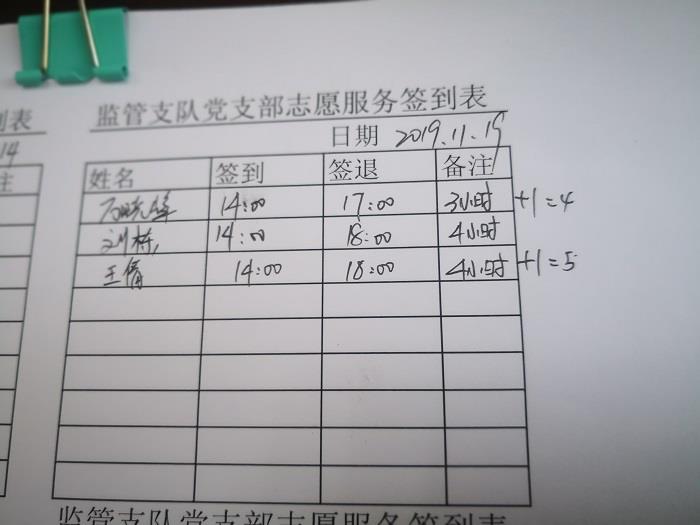 到表
14
注
监管支队党支部志愿服务签到表
日期 2019.11.19
姓名 签到 签退 备注
14:00 17:00 3小时 +1=4
刘栋 14:00 18:00 4小时
王倩 14:00 18:00 4小时 +1=5
监管支队党支部志愿服务签到表